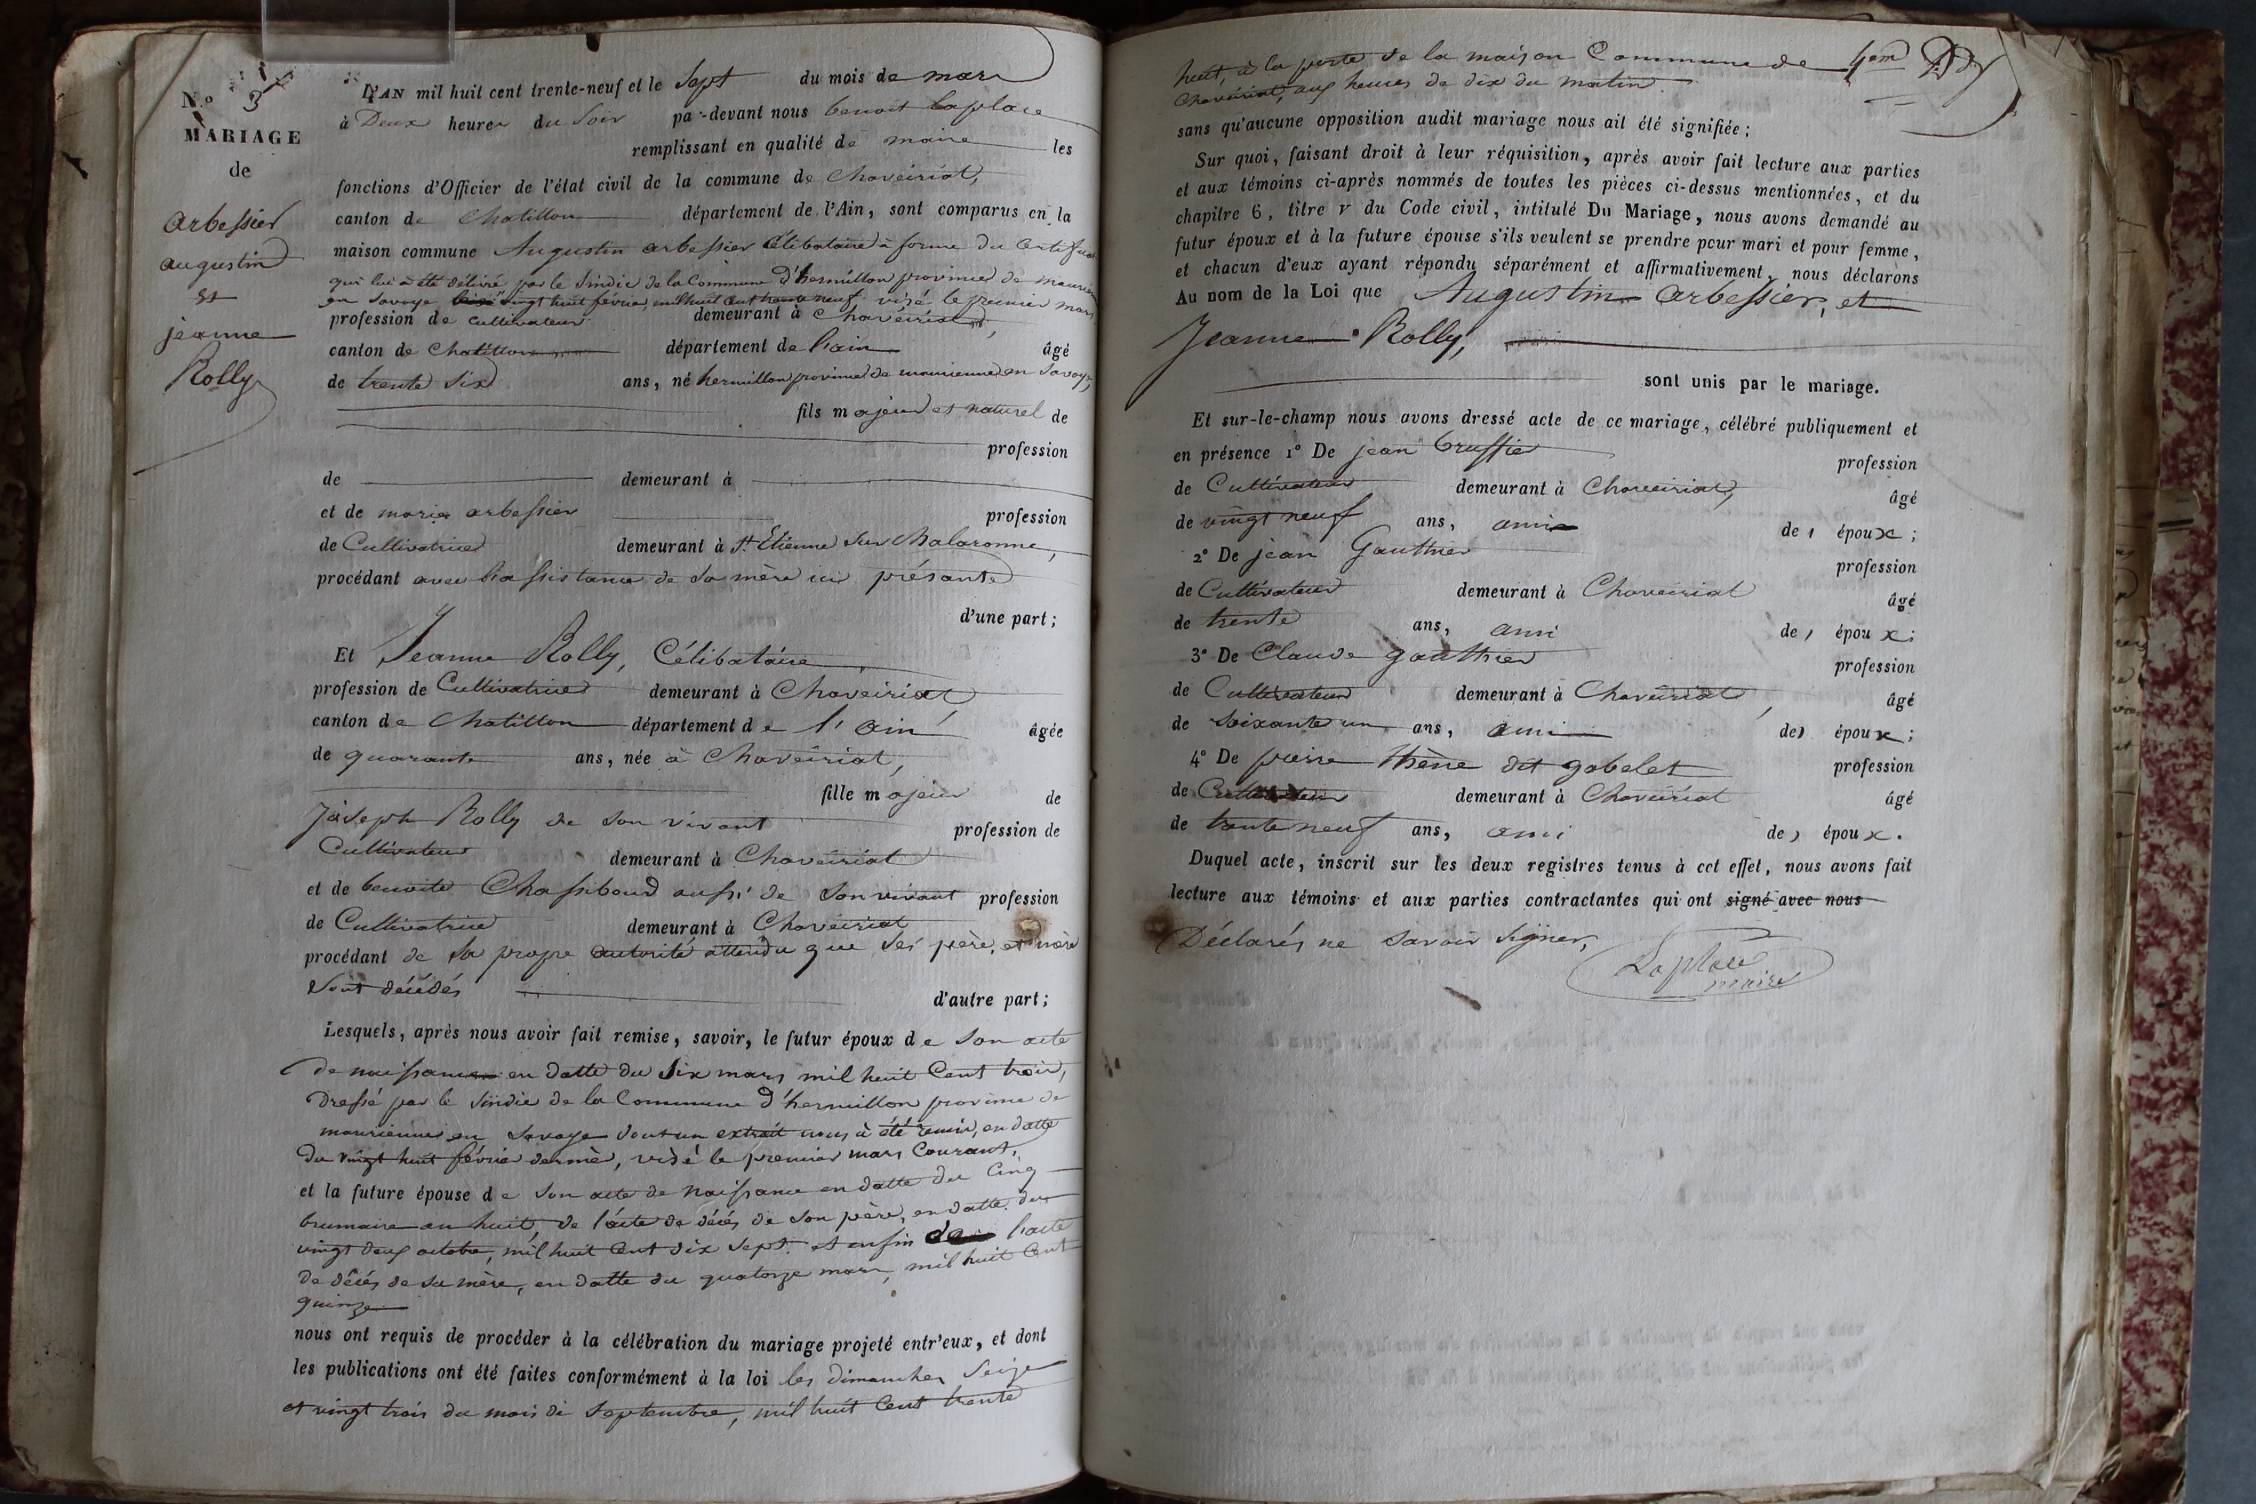 N.º 3
MARIAGE
de
arbessier
augustin
et
jeanne
Rolly
L'AN mil huit cent trente-neuf et le Sept du mois de mars
à Deux heures du Soir par-devant nous benoit Laplace
remplissant en qualité de maire les
fonctions d'Officier de l'état civil de la commune de Chaveiriat,
canton de Chatillon département de l'Ain, sont comparus en la
maison commune Augustin arbessier Célibataire à forme du Certificat
qui lui a été délivré par le Sindic de la Commune d'hermillon province de maurienne
en Savoye vingt huit févrié, mil huit cent trente neuf, visé le premier mars
profession de cultivateur demeurant à Chavéiriat,
canton de Chatillon département de L'ain âgé
de trente Six ans, né hermillon province de maurienne en Savoye,
fils majeur et naturel de
profession
de demeurant à
et de marie arbessier profession
de Cultivatrice demeurant à St Etienne Sur Chalaronne,
procédant avec L'assistance de Sa mère ici présante
d'une part;
Et Jeanne Rolly, Célibataire
profession de Cultivatrice demeurant à Chavéiriat
canton de Chatillon département de l'ain âgée
de quarante ans, née à Chavéiriat,
fille majeur de
Joseph Rolly de Son vivant profession de
Cultivateur demeurant à Chavéiriat
et de benoite Chassiboud aussi de Son vivant profession
de Cultivatrice demeurant à Chavéiriat
procédant de Sa propre autorité attendu que Ses père et mère
Sont décédés d'autre part;
Lesquels, après nous avoir fait remise, savoir, le futur époux de Son acte
de naissance en datte du Six mars mil huit Cent trois,
Dressé par le Sindic de la Commune d'hermillon province de
maurienne en Savoye dont un extrait nous à été remis, en datte
du vingt huit févrié dernié, visé le premier mars Courant,
et la future épouse de Son acte de Naissance en datte du Cinq
brumaire an huit, de l'acte de décés de Son père, en datte du
vingt deux octobre, mil huit Cent dix Sept. et enfin de L'acte
de décés de Sa mère, en datte du quatorze mars, mil huit Cent
quinze
nous ont requis de procéder à la célébration du mariage projeté entr'eux, et dont
les publications ont été faites conformément à la loi les dimanches Seize
et vingt trois du mois de Septembre, mil huit Cent trente
huit, à la porte de la maison Commune de
Chavéiriat, aux heures de dix du matin.
sans qu'aucune opposition audit mariage nous ait été signifiée;
Sur quoi, faisant droit à leur réquisition, après avoir fait lecture aux parties
et aux témoins ci-après nommés de toutes les pièces ci-dessus mentionnées, et du
chapitre 6, titre v du Code civil, intitulé Du Mariage, nous avons demandé au
futur époux et à la future épouse s'ils veulent se prendre pour mari et pour femme,
et chacun d'eux ayant répondu séparément et affirmativement, nous déclarons
Au nom de la Loi que Augustin arbessier, et
Jeanne Rolly,
sont unis par le mariage.
Et sur-le-champ nous avons dressé acte de ce mariage, célébré publiquement et
en présence 1º De jean profession
de Cultivateur demeurant à Chaveiriat, âgé
de vingt neuf ans, ami des époux;
2º De jean Gauthier profession
de Cultivateur demeurant à Chaveiriat âgé
de trente ans, ami des époux;
3º De Claude gauthier profession
de Cultivateur demeurant à Chavéiriat, âgé
de Soixante un ans, ami des époux;
4º De pierre thène dit gobelet profession
de Cultivateur demeurant à Chavéiriat âgé
de trente neuf ans, ami des époux.
Duquel acte, inscrit sur les deux registres tenus à cet effet, nous avons fait
lecture aux témoins et aux parties contractantes qui ont signé avec nous
Déclarés ne Savoir Signer,
Laplace
maire